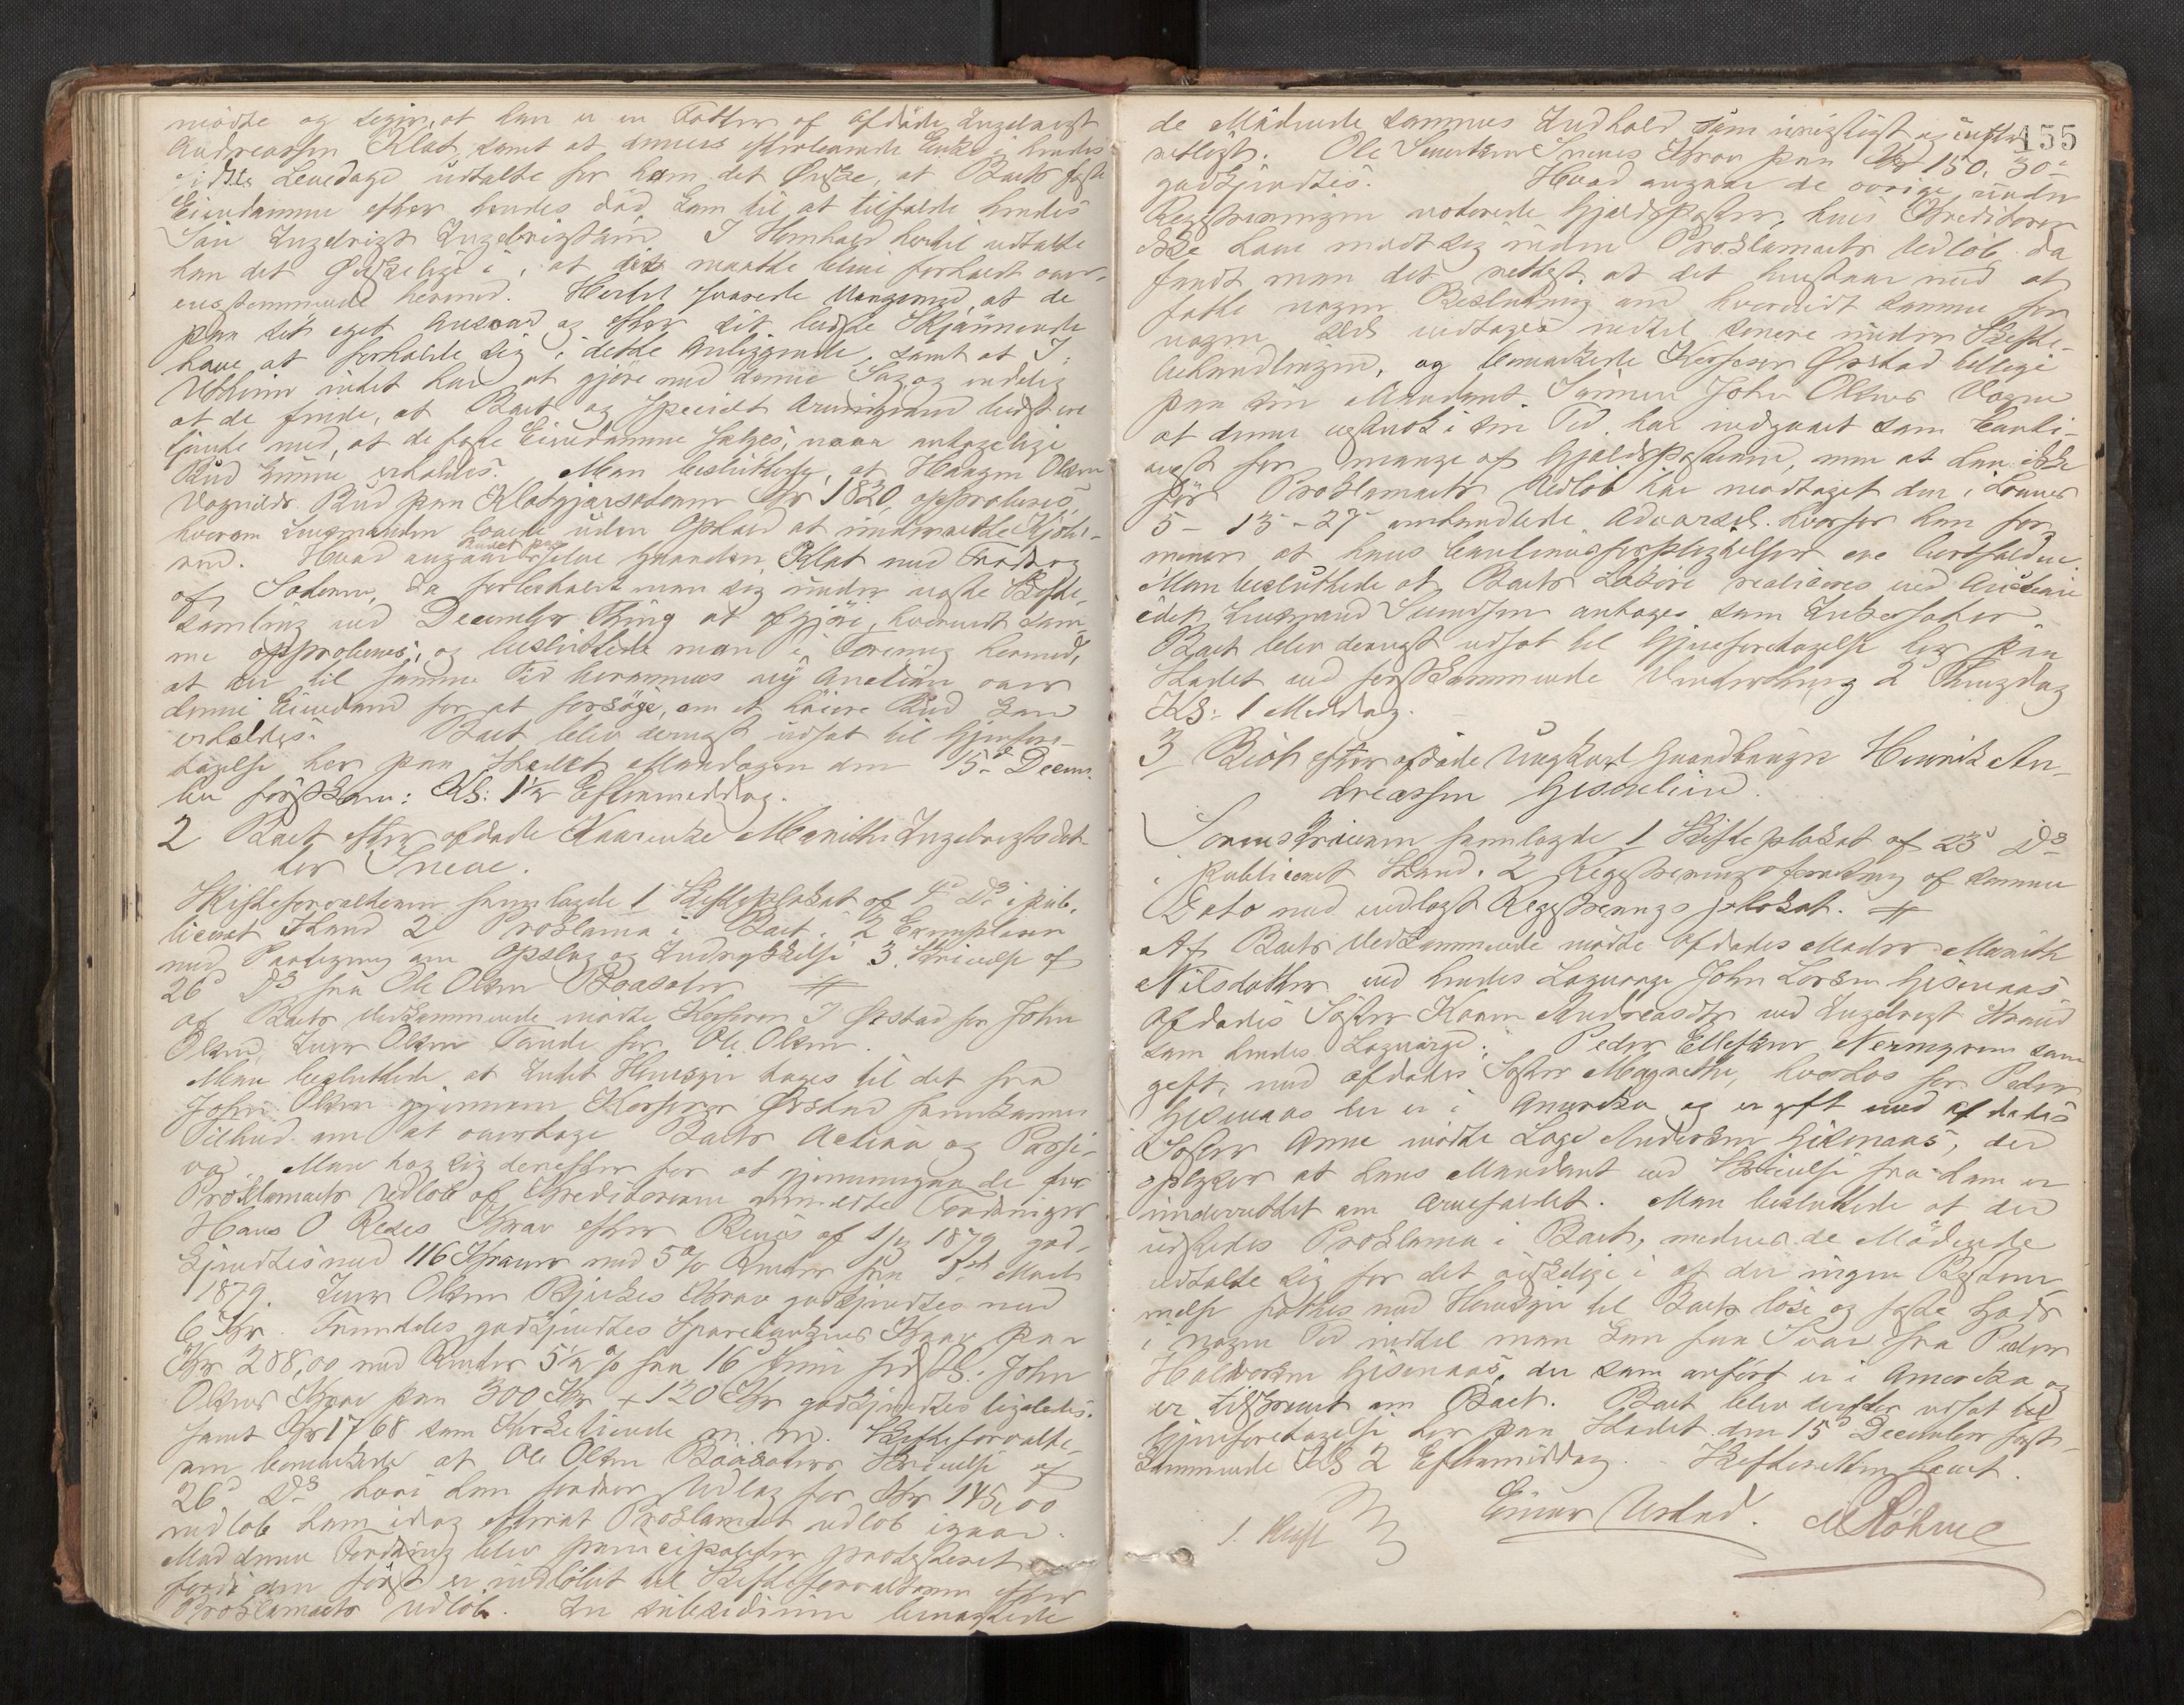 mødte og siger, at han er en Fætter af afdøde Ingebrigt
Andreassen Klat samt at dennes efterlevende Enke i hendes
sidste Levedage udtalte for ham det Ønske, at Boets faste
Eiendomme efter hendes død kom til at tilfalde hendes
Søn Ingebrigt Ingebrigtsøn. I Henhold hertil udtalte
han det Ønskelige i, at det maatte blive forholdt over-
ensstemmende hermed. Hertil svarede at de
paa sit eget Ansvar og efter sit bedste Skjønnende
have at forholde sig i dette Anliggende, samt at I.
intet har at gjøre med denne Sag og endelig
at de finde, at Boet og specielt Arvingerne bedst ere
tjente med, at de faste Eiendomme sælges, naar antagelige
Bud kunne erholdes. Man besluttede, at Haagen Olsen
Vognilds Bud paa Klatgjærsodden Kr 1820, approberes,
hvorom Lensmanden lovede uden Ophold at underrette Kjøbe-
ren. Hvad angaar Budet paa selve Gaarden Klat med Fradrag
af Sodden, da forbeholdt man sig under næste Skifte-
samling ved December Thing at afgjøre, hvorvidt sam-
me approberes, og besluttede man i Forening hermed,
at der til samme Tid berammes ny Auction over
denne Eiendom for at forsøge, om et høiere Bud kan
erholdes. Boet blev dernæst udsat til Gjenfore-
tagelse her paa Stedet Mandagen den 15de Decem-
ber førstkom: Kl: 1½ Eftermiddag.
2 Boet efter afdøde Maarenke Marith Ingebrigtsdat-
ter Sneve.
Skifteforvalteren fremlagde 1 Skifteplakat af 4d Ds i pub-
liceret Stand 2 Proklama i Boet i 2 Exemplarer
med Paategning om Opslag og Indrykkelse 3. Skrivelse af
26d Ds fra Ole Olsen Baasæter #
Af Boets Vedkommende mødte Kirkesanger I Ørstad for John
Olsen, Iver Olsen Tande for Ole Olsen.
Man besluttede at Intet Hensyn tages til det fra
John Olsen gjennem Kirkesanger Ørstad fremkomne
Tilbud om at overtage Boets Activa og Passi-
va. Man tog sig derefter for at gjennemgaa de før
Proklamaets Udløb af Kreditorerne anmeldte Fordringer
Hans O Rises Krav efter Bevis af 1/4 1879 god-
kjendtes med 116 Kroner med 5% Renter fra Marts
1879. Iver Olsen Bjerkes Krav godkjendtes med
6 Kr. Fremdeles godkjendtes Sparebankens Krav paa
Kr 288,00 med Renter 5½ % fra 16d Juni sidstl. John
Olsens Krav paa 300 Kr + 120 Kr godkjendtes ligeledes.
samt Kr 17 68 som Kirketiende m. m. Skifteforvalte-
ren bemærkede at Ole Olsen Baasæters Skrivelse af
26d Ds hvori han fordrer Udlæg for Kr 145,00
indløb ham idag efterat Proklamaet udløb igaar.
Mod denne Fordring blev principaliter protesteret
fordi den først er indløbet til Skifteforvalteren efter
Proklamaets Udløb. In subsidium benægtede
155
de Mødende sammes Indhold som urigtigt og uefter-
retligt. Ole Sivertsen Sneves Krav paa Kr 150, 30
godkjendtes. Hvad angaar de øvrige under
Registreringen noterede Gjældsposter, hvis Kreditorer
ikke have meldt sig inden Proklamaets Udløb, da
fandt man det rettest at det henstaar med at
fatte nogen Beslutning om hvorvidt samme for
nogen Del vedtages indtil senere under Skifte-
behandlingen, og bemærkede Kirkesanger Ørstad tillige
paa sin Mandant Sønnen John Olsens Vegne
at denne vistnok i sin Tid har indgaaet som Cauti-
onist for mange af Gjældsposterne, men at han ikke
før Proklamaets Udløb har modtaget den i Lovens
5 - 13 - 27 omhandlede Advarsel. hvorfor han for-
mener at hans Cautionsforpligtelser ere bortfaldne.
Man besluttede at Boets Løsøre realiseres ved Auction
idet Lensmand Svendsen antages som Inkassator.
Boet blev dernæst udsat til Gjenforetagelse her paa
Stedet ved førstkommende Vinterthing 2 Thingdag
Kl: 1 Middag.
3 Boet efter afdøde Ungkarl Gaardbruger Henrik An-
dreassen Gisnaslien.
Sorenskriveren fremlagde 1 Skifteplakat af 23d Ds
i publiceret Stand. 2 Registreringsforretning af samme
Dato med vedlagt Registreringsplakat. #
Af Boets Vedkommende mødte Afdødes Moder Marith
Nilsdatter ved hendes Laugværge John Larsen Gisnaas
Afdødes Søster Karen Andreasdtr ved Ingebrigt Strand
som hendes Laugværge; Peder Ellefsen Nerengren som
gift med afdødes Søster Magrethe, hvorhos for Peder
Gisnaas der er i Amerika og er gift med afdødes
Søster Anne mødte Lage Andersen Gisnaas, der
oplyser at hans Mandant ved Skrivelse fra ham er
underrettet om Arvefaldet. Man besluttede at der
udstedes Proklama i Boet, medens de Mødende
udtalte sig for det ønskelige i at der ingen Bestem-
melse fattes med Hensyn til Boets løse og faste Gods
i nogen Tid indtil man kan faa Svar fra Peder
Halvorsen Gisnaas, der som anført er i Amerika og
er tilskrevet om Boet. Boet blev derefter udsat til
Gjenforetagelse her paa Stedet den 15d December først-
kommende Kl 2 Eftermiddag. Skifteretten hævet.
Einar Ursted. M Röhme